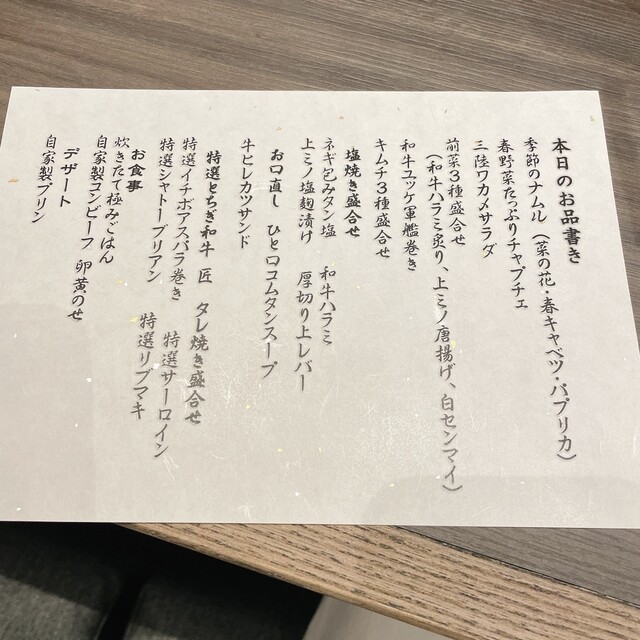 本日のお品書き
季節のナムル（菜の花・春キャベツ・パプリカ）
春野菜たっぷりチャプチェ
三陸ワカメサラダ
前菜３種盛合せ
（和牛ハラミ炙り、上ミノ唐揚げ、白センマイ）
和牛ユッケ軍艦巻き
キムチ３種盛合せ
塩焼き盛合せ
ネギ包みタン塩　和牛ハラミ
上ミノ塩麹漬け　厚切り上レバー
お口直し　ひと口コムタンスープ
牛ヒレカツサンド
特選とちぎ和牛　匠　タレ焼き盛合せ
特選イチボアスパラ巻き　特選サーロイン
特選シャトーブリアン　特選リブマキ
お食事
炊きたて極みごはん
自家製コンビーフ　卵黄のせ
デザート
自家製プリン